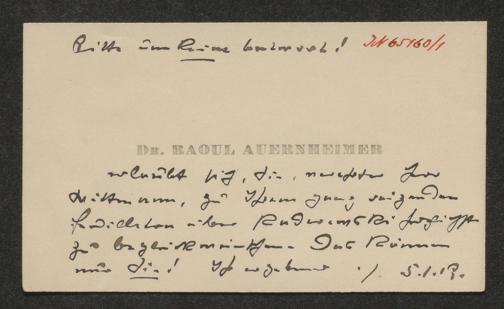 Bitte um keine Antwort! IN 65160/1
DR. RAOUL AUERNHEIMER
erlaubt sich, Sie, verehrter Herr
Wittmann, zu Ihrem ganz reizenden
Feuilleton über
zu beglückwünschen. Das können
nur Sie! Ihr ergebener ./. 5.1.13.